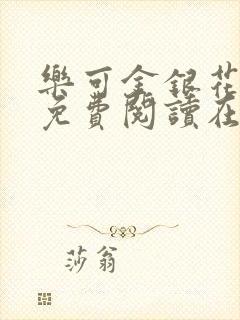 樂可金銀花
免費閱讀在
莎翁